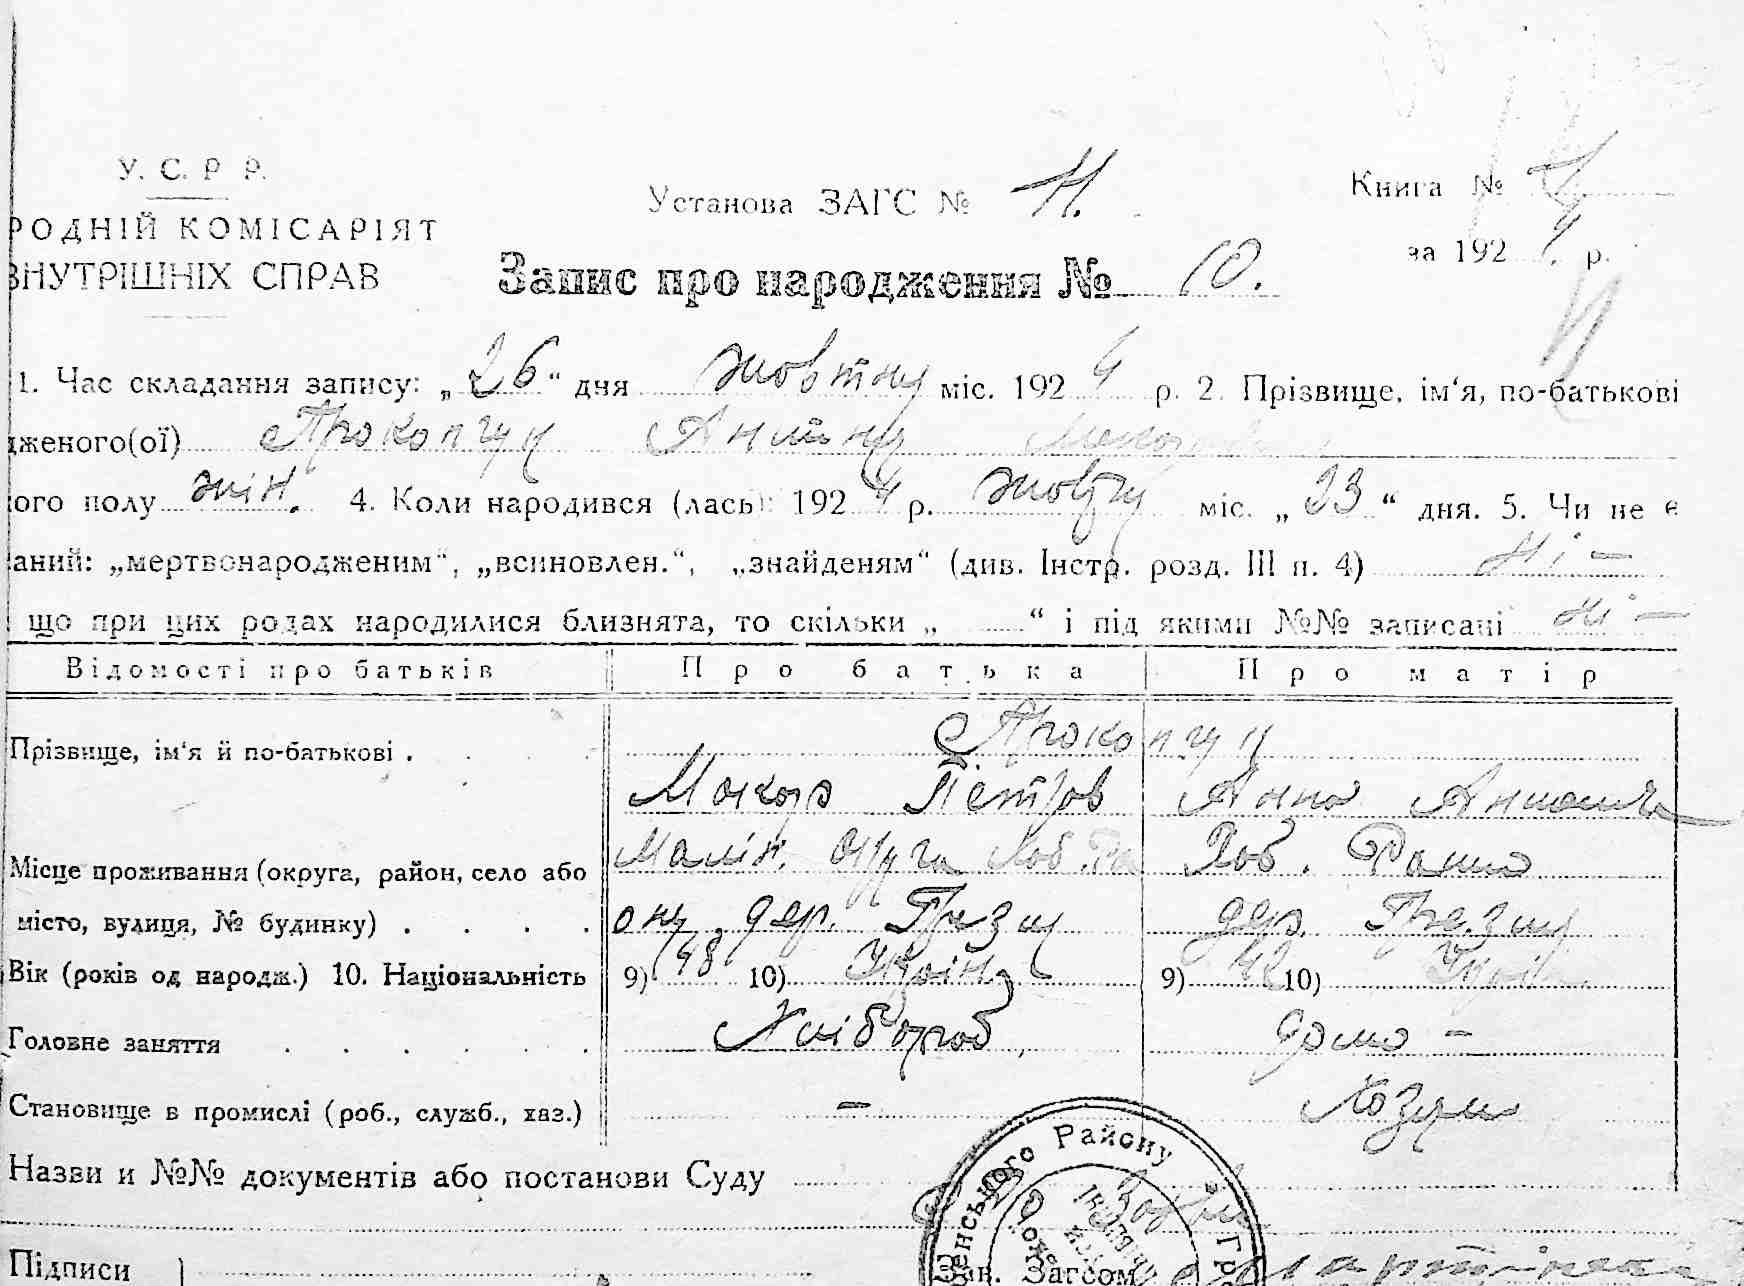 У. С. Р Р.
РОДНІЙ КОМІСАРІЯТ
ВНУТРІШНІХ СПРАВ
Установа ЗАГС № 11.
Книга №
за 192 4 р.
Запис про народження № 10.
1. Час складання запису: „ 26 “ дня жовтня міс. 192 4 р. 2. Прізвище, ім‘я, по-батькові
дженого(ої) Прокопчук
ого полу жін. 4. Коли народився (лась): 192 4 р. жовтня міс. „ 23 “ дня. 5. Чи не є
аний: „мертвонародженим“, „всиновлен.“, „знайденям“ (див. Інстр. розд. III п. 4) Ні –
що при цих родах народилися близнята, то скільки „ “ і під якими №№ записані ні –
Відомості про батьків Про батька Про матір
Прізвище, ім‘я й по-батькові . Прокопчук
Макар Петров Анна
Місце проживання (округа, район, село або Малін. округа Роб.
місто, вулиця, № будинку) . . . . ону дер. Грезля дер. Грезля
Вік (років од народж.) 10. Національність 9) 48 10) Україн. 9) 42 10) Україн.
Головне заняття . . . . . . Хлібороб, домо –
Становище в промислі (роб., служб., хаз.) –
Назви и №№ документів або постанови Суду
Району
Підписи
Зав. Загсом